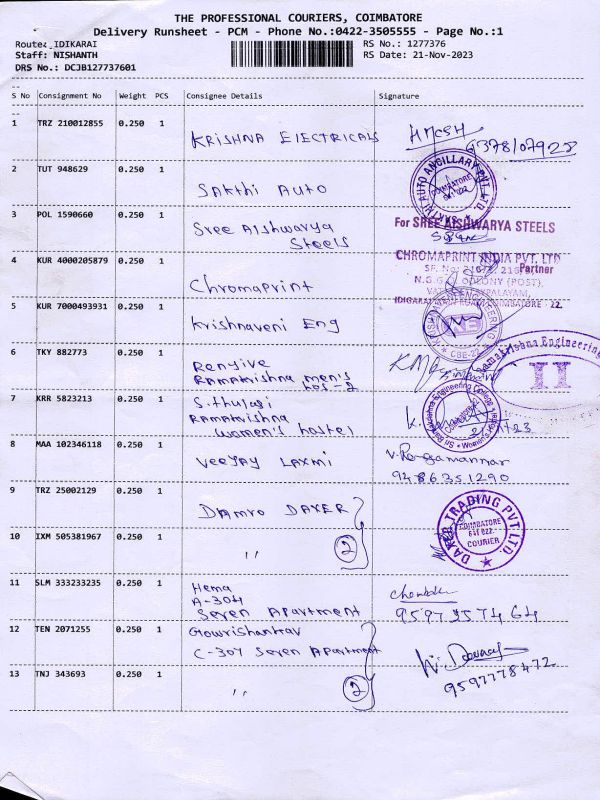 THE PROFESSIONAL COURIERS, COIMBATORE
Delivery Runsheet - PCM - Phone No.:0422-3505555 - Page No.:1
Route: IDIKARAI
RS No.: 1277376
Staff: NISHANTH
RS Date: 21-Nov-2023
DRS No.: DCJB127737601
S No Consignment No Weight PCS Consignee Details Signature
1 TRZ 210012855 0.250 1 KRISHNA ELECTRICALS
2 TUT 948629 0.250 1 SAKthi AUTO
AUTO ANCILLARY PVT. LTD.
COIMBATORE
3 POL 1590660 0.250 1 Sree AIshwarya
Steels
For SREE AISHWARYA STEELS
Partner
4 KUR 4000205879 0.250 1 Chromaprint
CHROMAPRINT INDIA PVT. LTD
5 KUR 7000493931 0.250 1 Krishnaveni Eng
CBE-22
6 TKY 882773 0.250 1
Ramakrishna men's
II
7 KRR 5823213 0.250 1 S.thulasi
Ramakrishna
women's hostel
8 MAA 102346118 0.250 1 VeeJAY LAXMI
V. Rengamannar
9486351290
9 TRZ 25002129 0.250 1 DAMRO DAXER
DAXER TRADING PVT. LTD.
COIMBATORE
641 022
COURIER
10 IXM 505381967 0.250 1 " 2
11 SLM 333233235 0.250 1 Hema
A-304
Seven Apartment
9597357464
12 TEN 2071255 0.250 1 Gowrishankar
C-307 Seven Apartment
9597778472
13 TNJ 343693 0.250 1 " 2